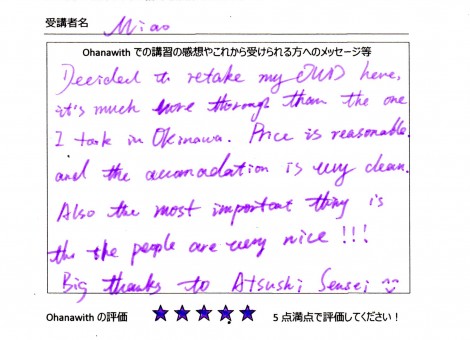 受講者名 Miao
Ohanawith での講習の感想やこれから受けられる方へのメッセージ等
Decided to retake my OWD here,
it's much more thorough than the one
I took in Okinawa. Price is reasonable.
and the accomodation is very clean.
Also the most important thing is
the people are very nice !!!
Big thanks to Atsushi Sensei
Ohanawith の評価 ★★★★★ 5 点満点で評価してください！